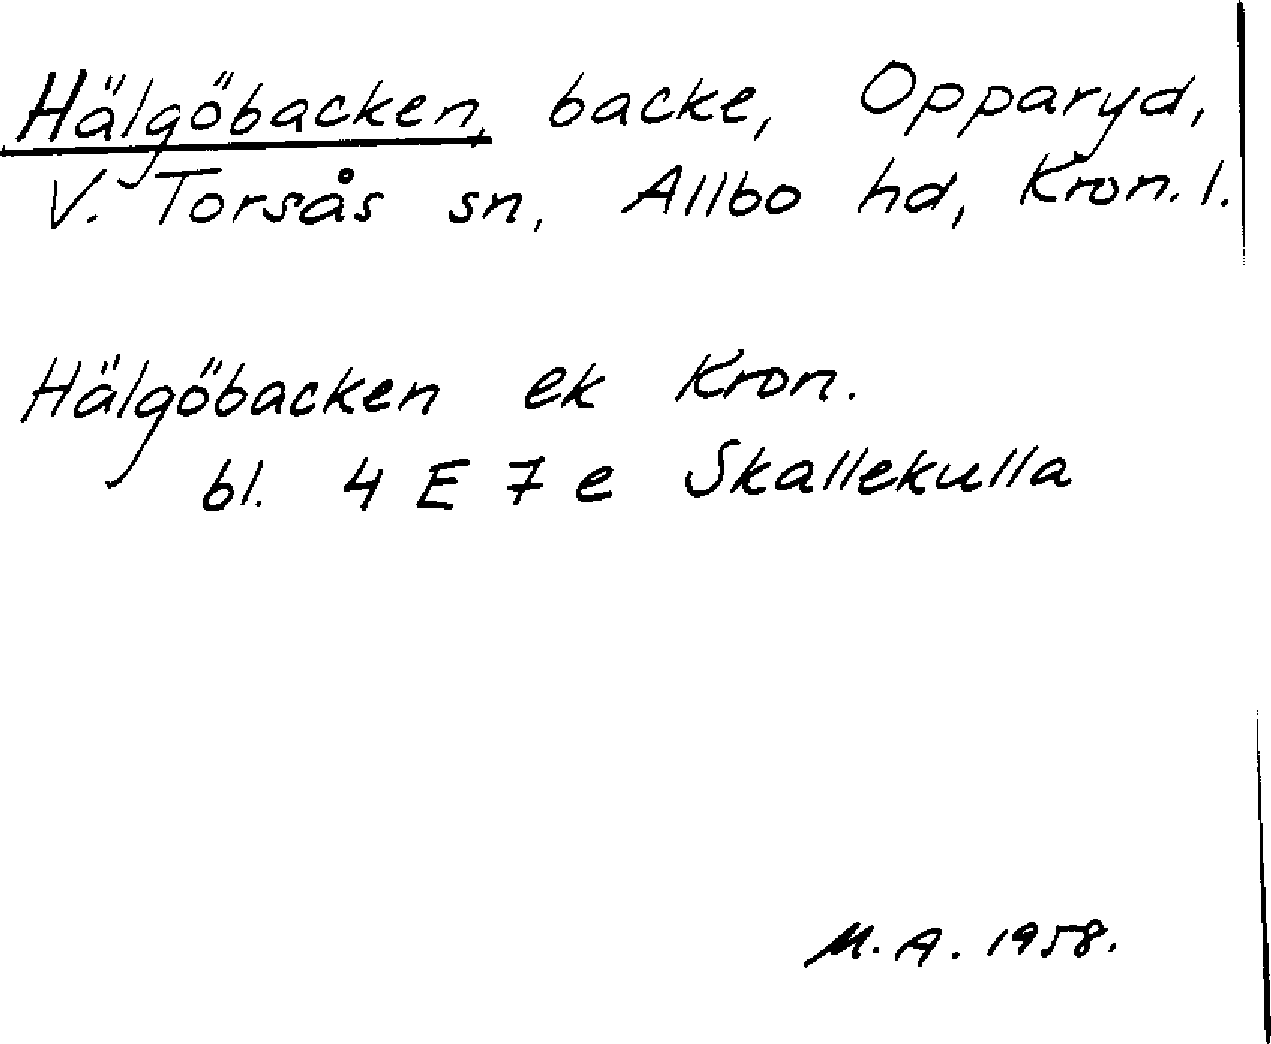 Hälgöbacken, backe, Opparyd,
V. Torsås sn, Allbo hd, Kron. l.
Hälgöbacken ek Kron.
bl. 4 E 7 e Skallekulla
M. A. 1958.